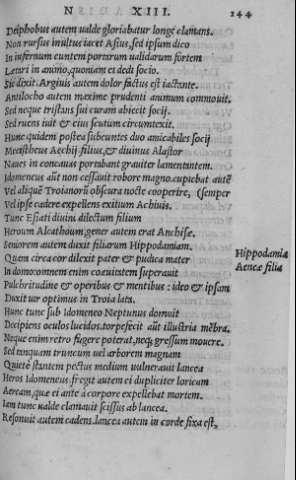 N XIII. 144
Deiphobus autem ualde gloriabatur longè clamans.
Non rursus inultus iacet Asius, sed ipsum dico
In infernum euntem portarum ualidarum fortem
Lætari in animo, quoniam ei dedi socio.
Sic dixit. Argiuis autem dolor factus est iactante.
Antilocho autem maxime prudenti animum commouit.
Sed neque tristans sui curam abiecit socij.
Sed ruens iuit & eius scutum circumtexit.
Hunc quidem postea subeuntes duo amicabiles socij
Mecistheus Aechij filius, & diuinus Alastor
Naues in concauas portabant grauiter lamentantem.
Idomeneus aũt non cessauit robore magno. cupiebat autẽ
Vel aliquẽ Troianorũ obscura nocte cooperire, (semper
Vel ipse cadere expellens exitium Achiuis.
Tunc Esiati diuini dilectum filium
Heroum Alcathoum, gener autem erat Anchisæ.
Seniorem autem duxit filiarum Hippodamiam.
Hippodamia
Quem circa cor dilexit pater & pudica mater
Aeneæ filia
In domo: omnem enim coæuitatem superauit
Pulchritudine & operibus & mentibus: ideo & ipsam
Duxit uir optimus in Troia lata.
Hunc tunc sub Idomeneo Neptunus domuit
Decipiens oculos lucidos. torpefecit aũt illustria mẽbra.
Neque enim retro fugere poterat, neq; gressum mouere.
Sed tanquam truncum uel arborem magnam
Quietè stantem pectus medium vulnerauit lancea
Heros Idomeneus: fregit autem ei dupliciter loricam
Aeream, quæ ei ante à corpore expellebat mortem.
Iam tunc ualde clamauit scissus ab lancea.
Resonuit autem cadens. lancea autem in corde fixa est,